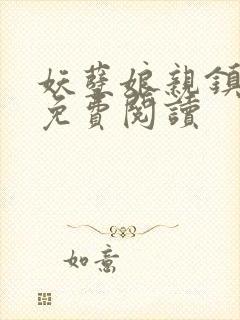 妖孽娘親鎮
免費閱讀
如意